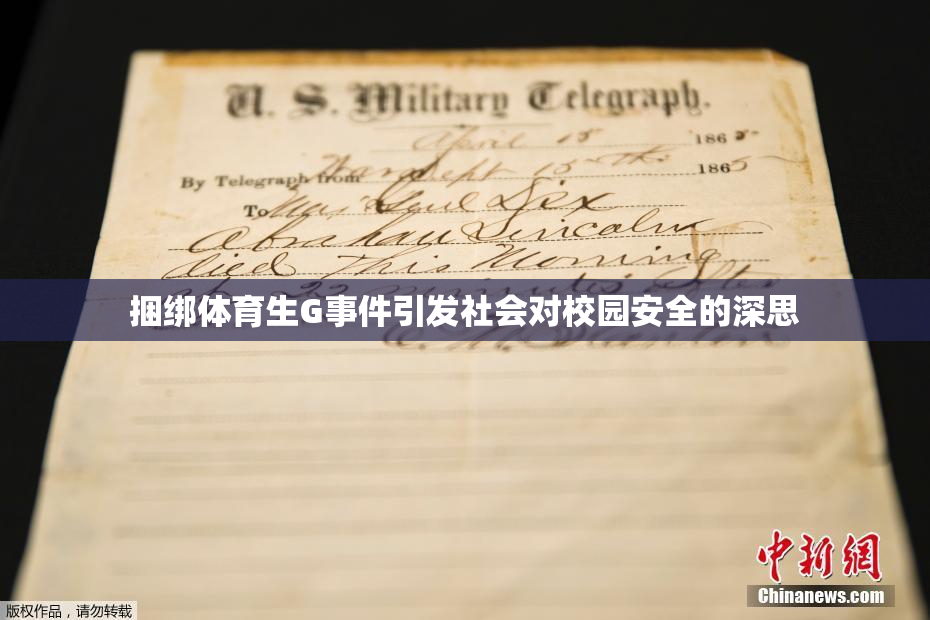 U. S. Military Telegraph.
April 15 1865
By Telegraph from War Dept 15th 1865
To Maj Genl Dix
Abraham Lincoln
died This Morning
at 22 minutes after
捆绑体育生G事件引发社会对校园安全的深思
E. M. Stanton
中新网
Chinanews.com
版权作品，请勿转载